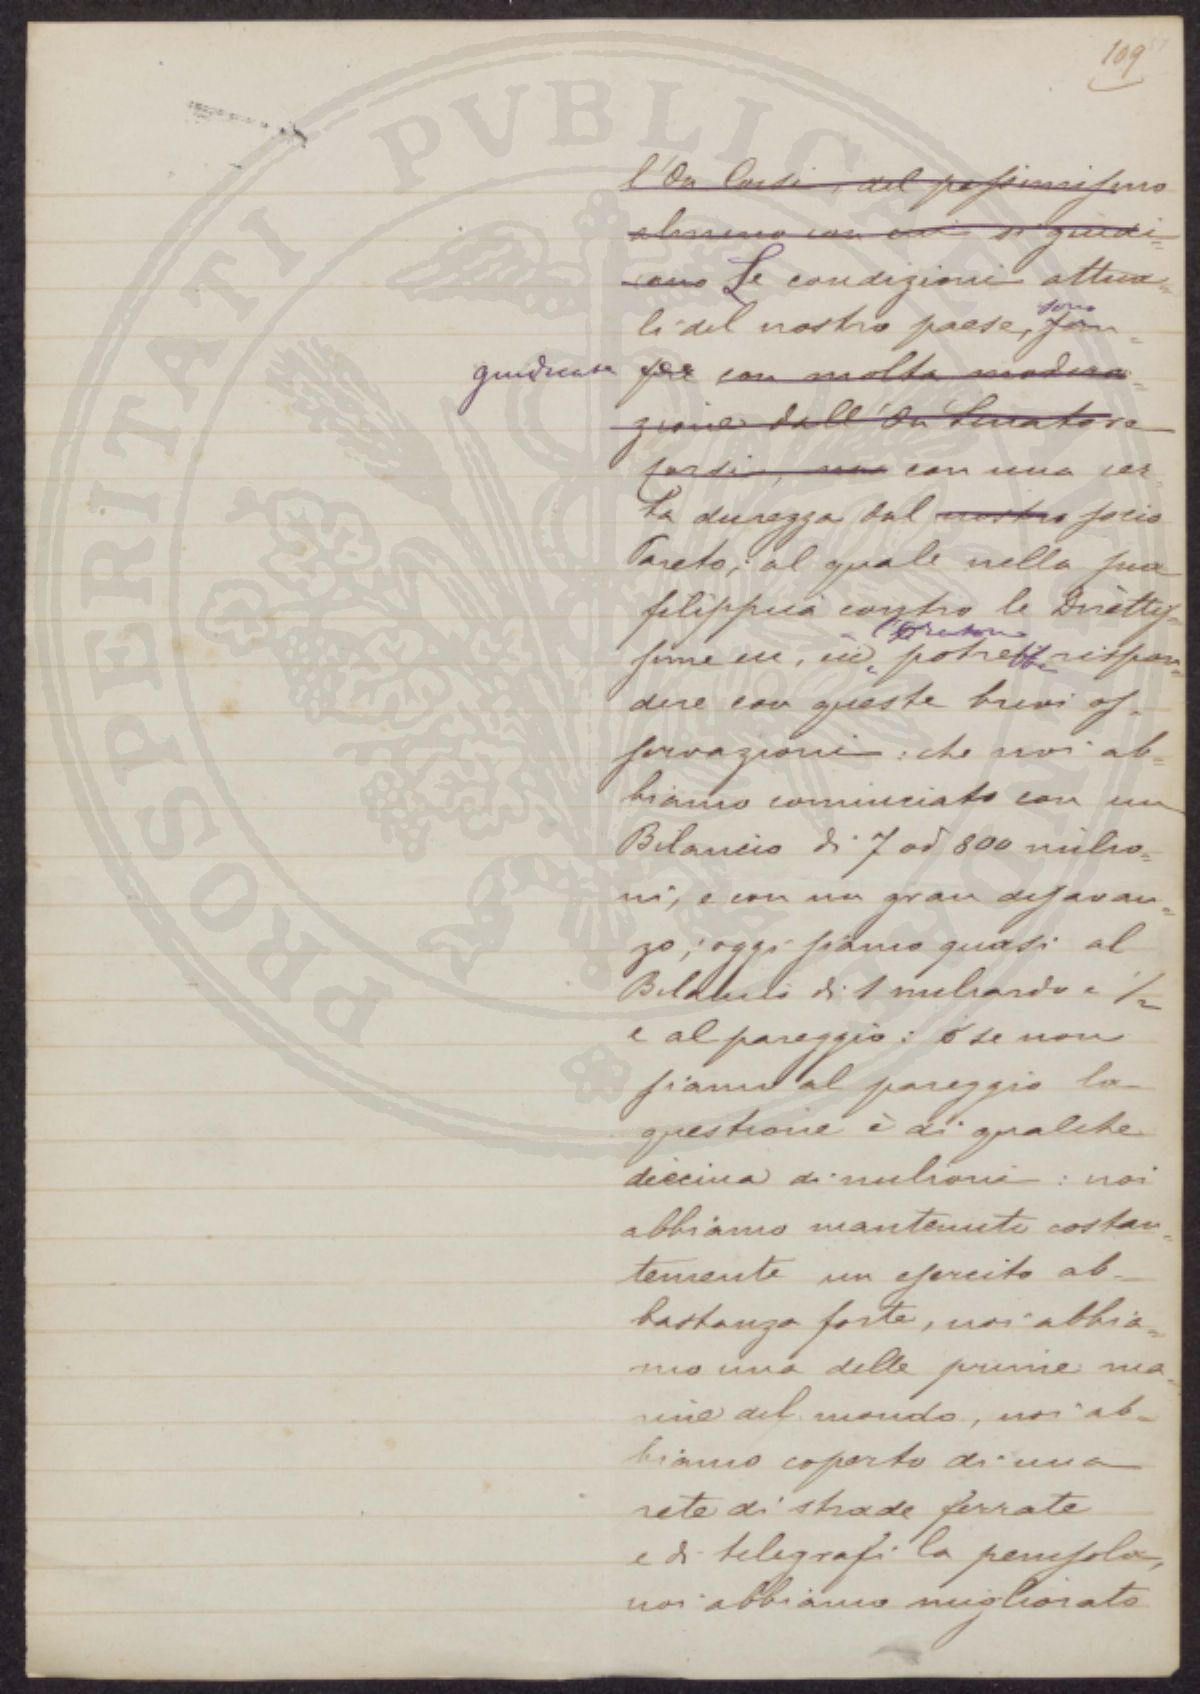 109
l'On Corsi, del pessimismo
almeno con cui si giudi=
cano Le condizioni attua=
li del nostro paese, sono
giudicate con molta modera=
zione dall'On Senatore
Corsi, ma con una cer=
ta durezza dal nostro socio
Pareto, al quale nella sua
filippica contro le Dirittis=
sime ecc, ecc, l'Oratore potrebbe rispon=
dere con queste brevi os=
servazioni: che noi ab=
biamo cominciato con un
Bilancio di 7 od 800 milio=
ni, e con un gran disavan=
zo; oggi siamo quasi al
Bilancio di 1 miliardo e 1/2
e al pareggio: o se non
siamo al pareggio la
questione è di qualche
diecina di milioni: noi
abbiamo mantenuto costan=
temente un esercito ab=
bastanza forte, noi abbia=
mo una delle prime ma=
rine del mondo, noi ab=
biamo coperto di una
rete di strade ferrate
e di telegrafi la penisola,
noi abbiamo migliorato
PROSPERITATI PVBLICAE